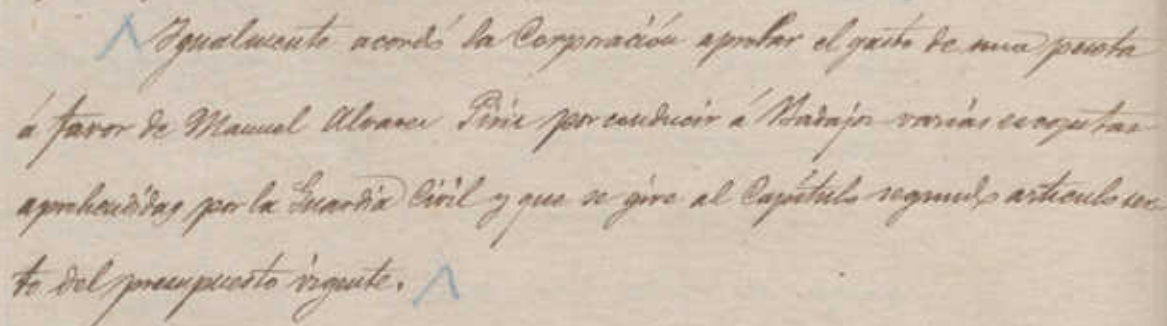 Igualmente acordó la Corporación aprobar el gasto de una peseta
á favor de Manuel Alvarez Píriz por conducir á Badajoz varias escopetas
aprehendidas por la Guardia Civil y que se gire al Capítulo segundo artículo sex-
to del presupuesto vigente.